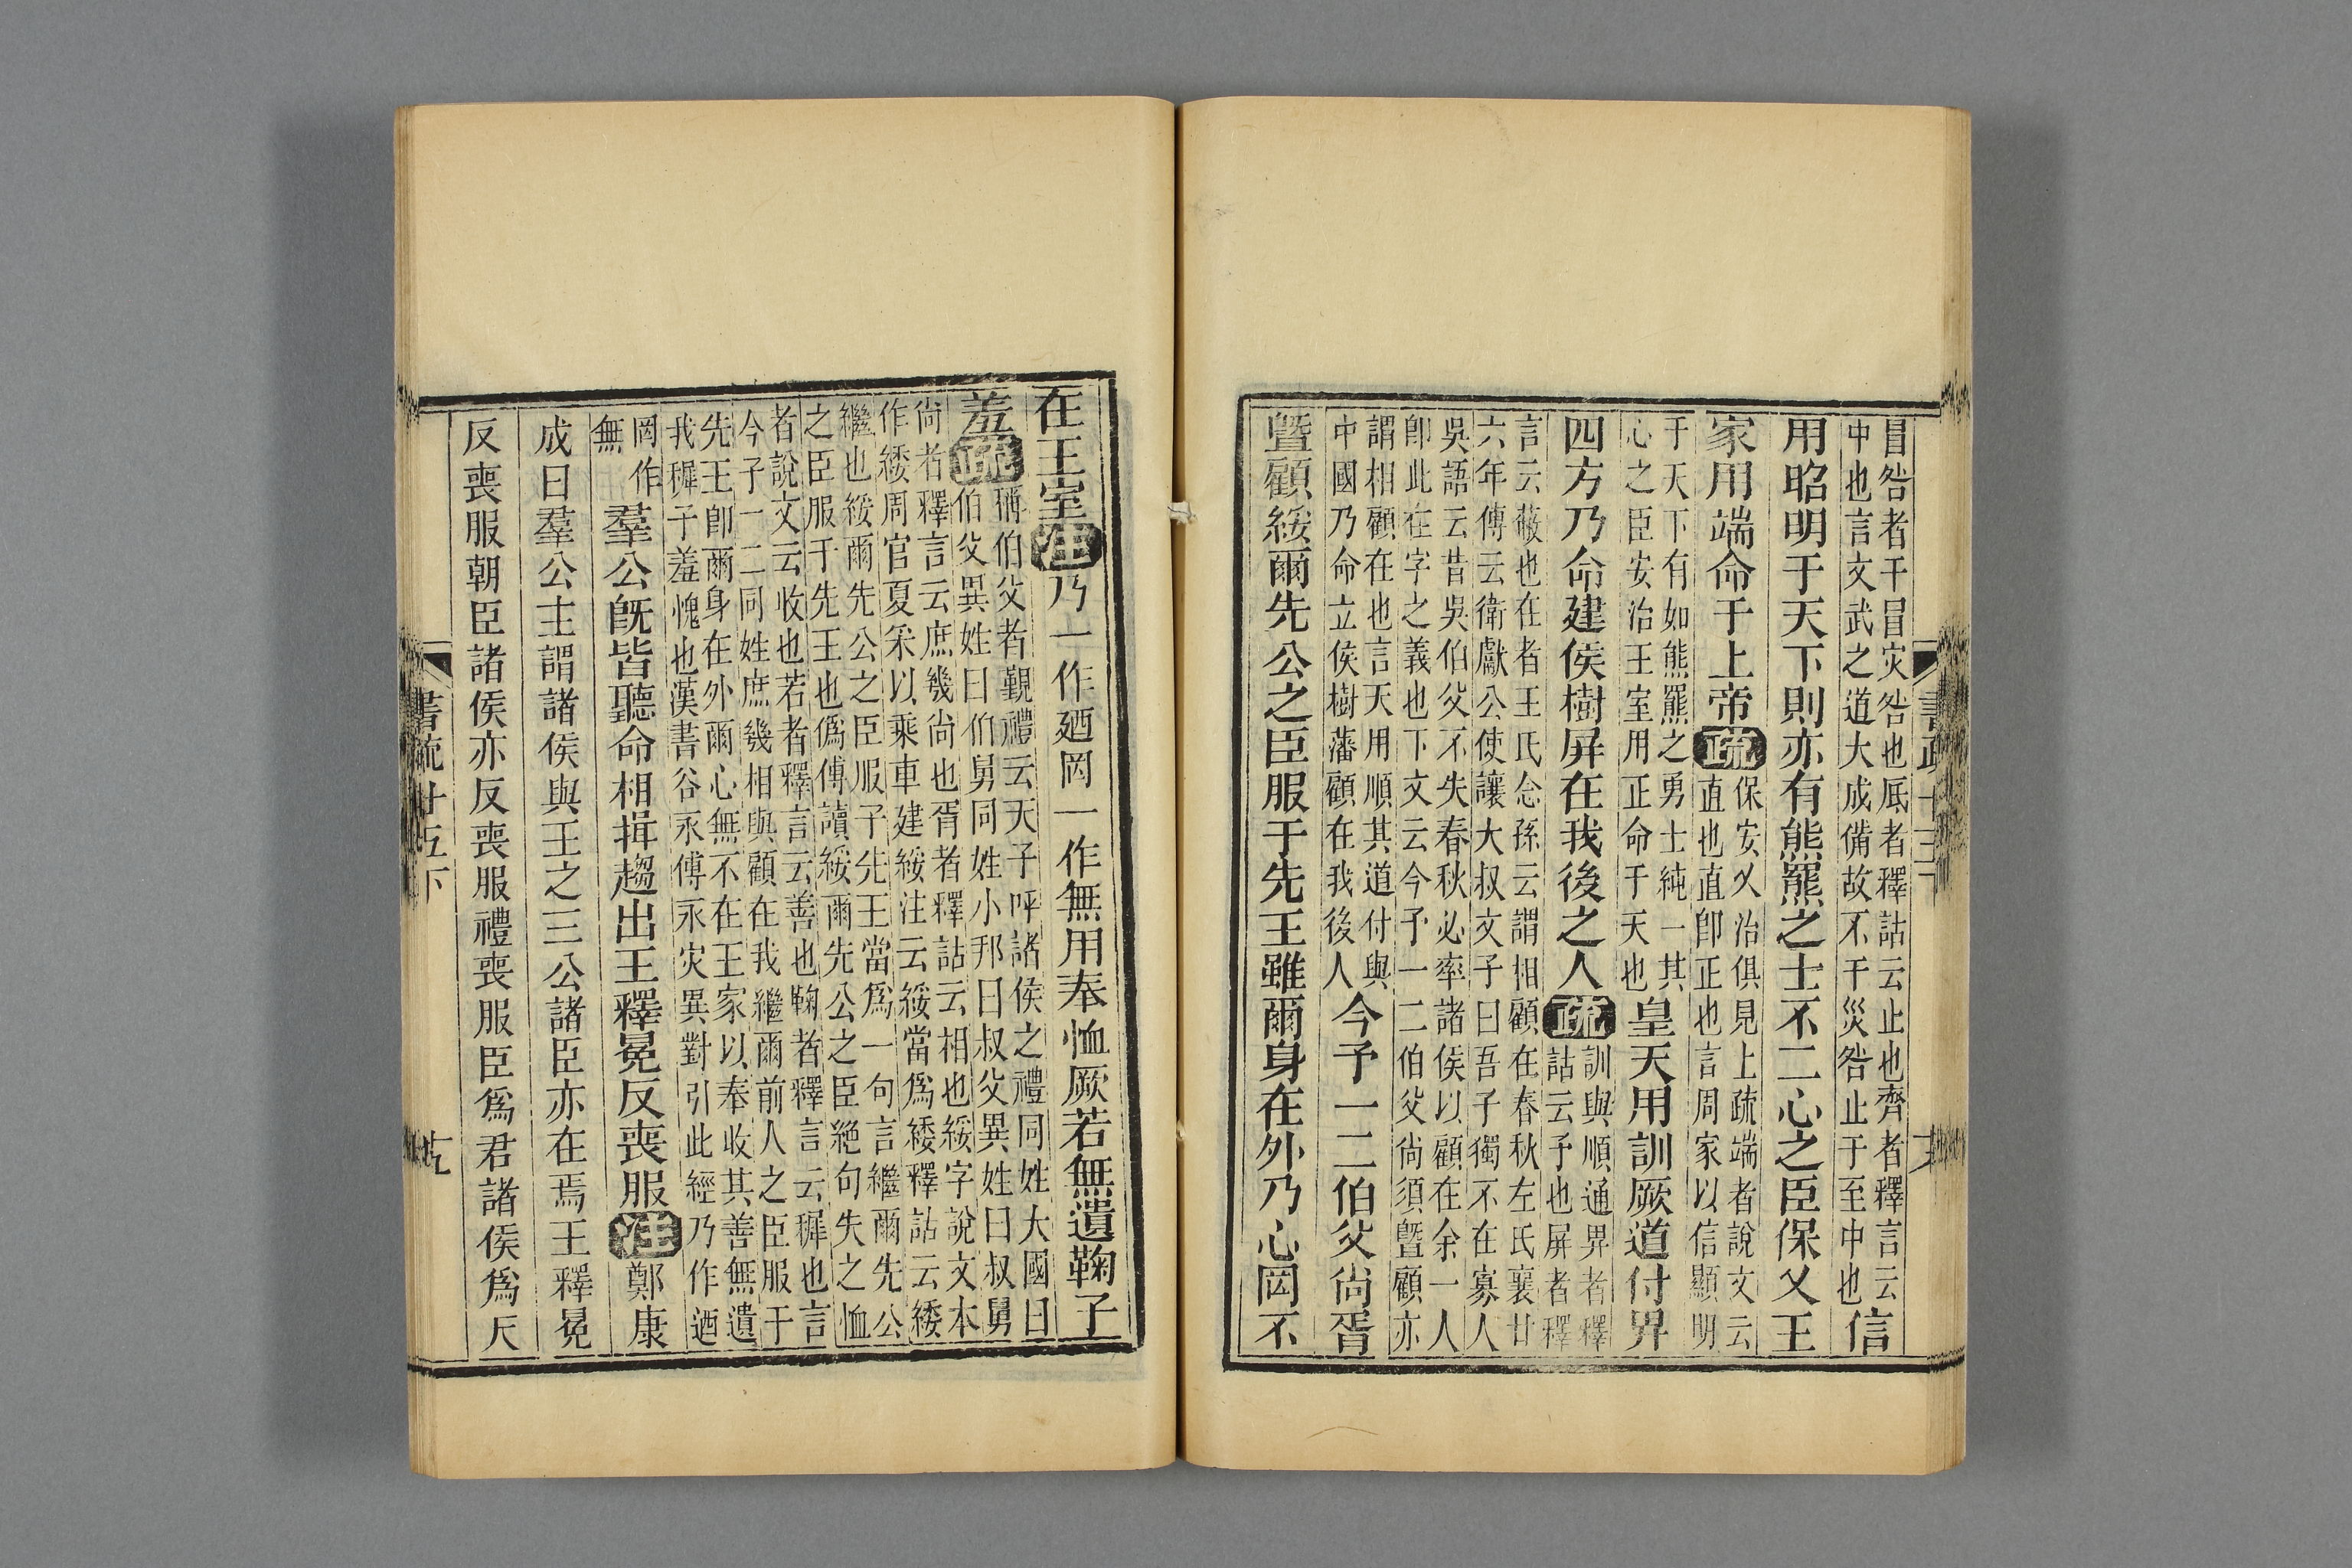 冒咎者干冒灾咎也厎者釋詁云止也齊者釋言云
中也言文武之道大成備故不干災咎止于至中也信
用昭明于天下則亦有熊羆之士不二心之臣保乂王
家用端命于上帝疏保安乂治俱見上疏端者說文云
直也直卽正也言周家以信顯明
于天下有如熊羆之勇士純一其
心之臣安治王室用正命于天也皇天用訓厥道付畀
四方乃命建侯樹屏在我後之人疏訓與順通畀者釋
詁云予也屏者釋
言云蔽也在者王氏念孫云謂相顧在春秋左氏襄廿
六年傳云衛獻公使讓大叔文子曰吾子獨不在寡人
吳語云昔吳伯父不失春秋必率諸侯以顧在余一人
卽此在字之義也下文云今予一二伯父尙須曁顧亦
謂相顧在也言天用順其道付與
中國乃命立侯樹藩顧在我後人今予一二伯父尙胥
曁顧綏爾先公之臣服于先王雖爾身在外乃心罔不
書疏廿五下
在王室注乃一作廼罔一作無用奉恤厥若無遺鞠子
羞疏稱伯父者覲禮云天子呼諸侯之禮同姓大國曰
伯父異姓曰伯舅同姓小邦曰叔父異姓曰叔舅
尙者釋言云庶幾尙也胥者釋詁云相也綏字說文本
作緌周官夏采以乘車建綏注云綏當爲緌釋詁云緌
繼也綏爾先公之臣服于先王當爲一句言繼爾先公
之臣服于先王也僞傳讀綏爾先公之臣絕句失之恤
者說文云收也若者釋言云善也鞠者釋言云穉也言
今予一二同姓庶幾相與顧在我繼爾前人之臣服于
先王卽爾身在外爾心無不在王家以奉收其善無遺
我穉子羞愧也漢書谷永傳永灾異對引此經乃作迺
罔作
無羣公旣皆聽命相揖趨出王釋冕反喪服注鄭康
成曰羣公主謂諸侯與王之三公諸臣亦在焉王釋冕
反喪服朝臣諸侯亦反喪服禮喪服臣爲君諸侯爲天
書疏廿五下